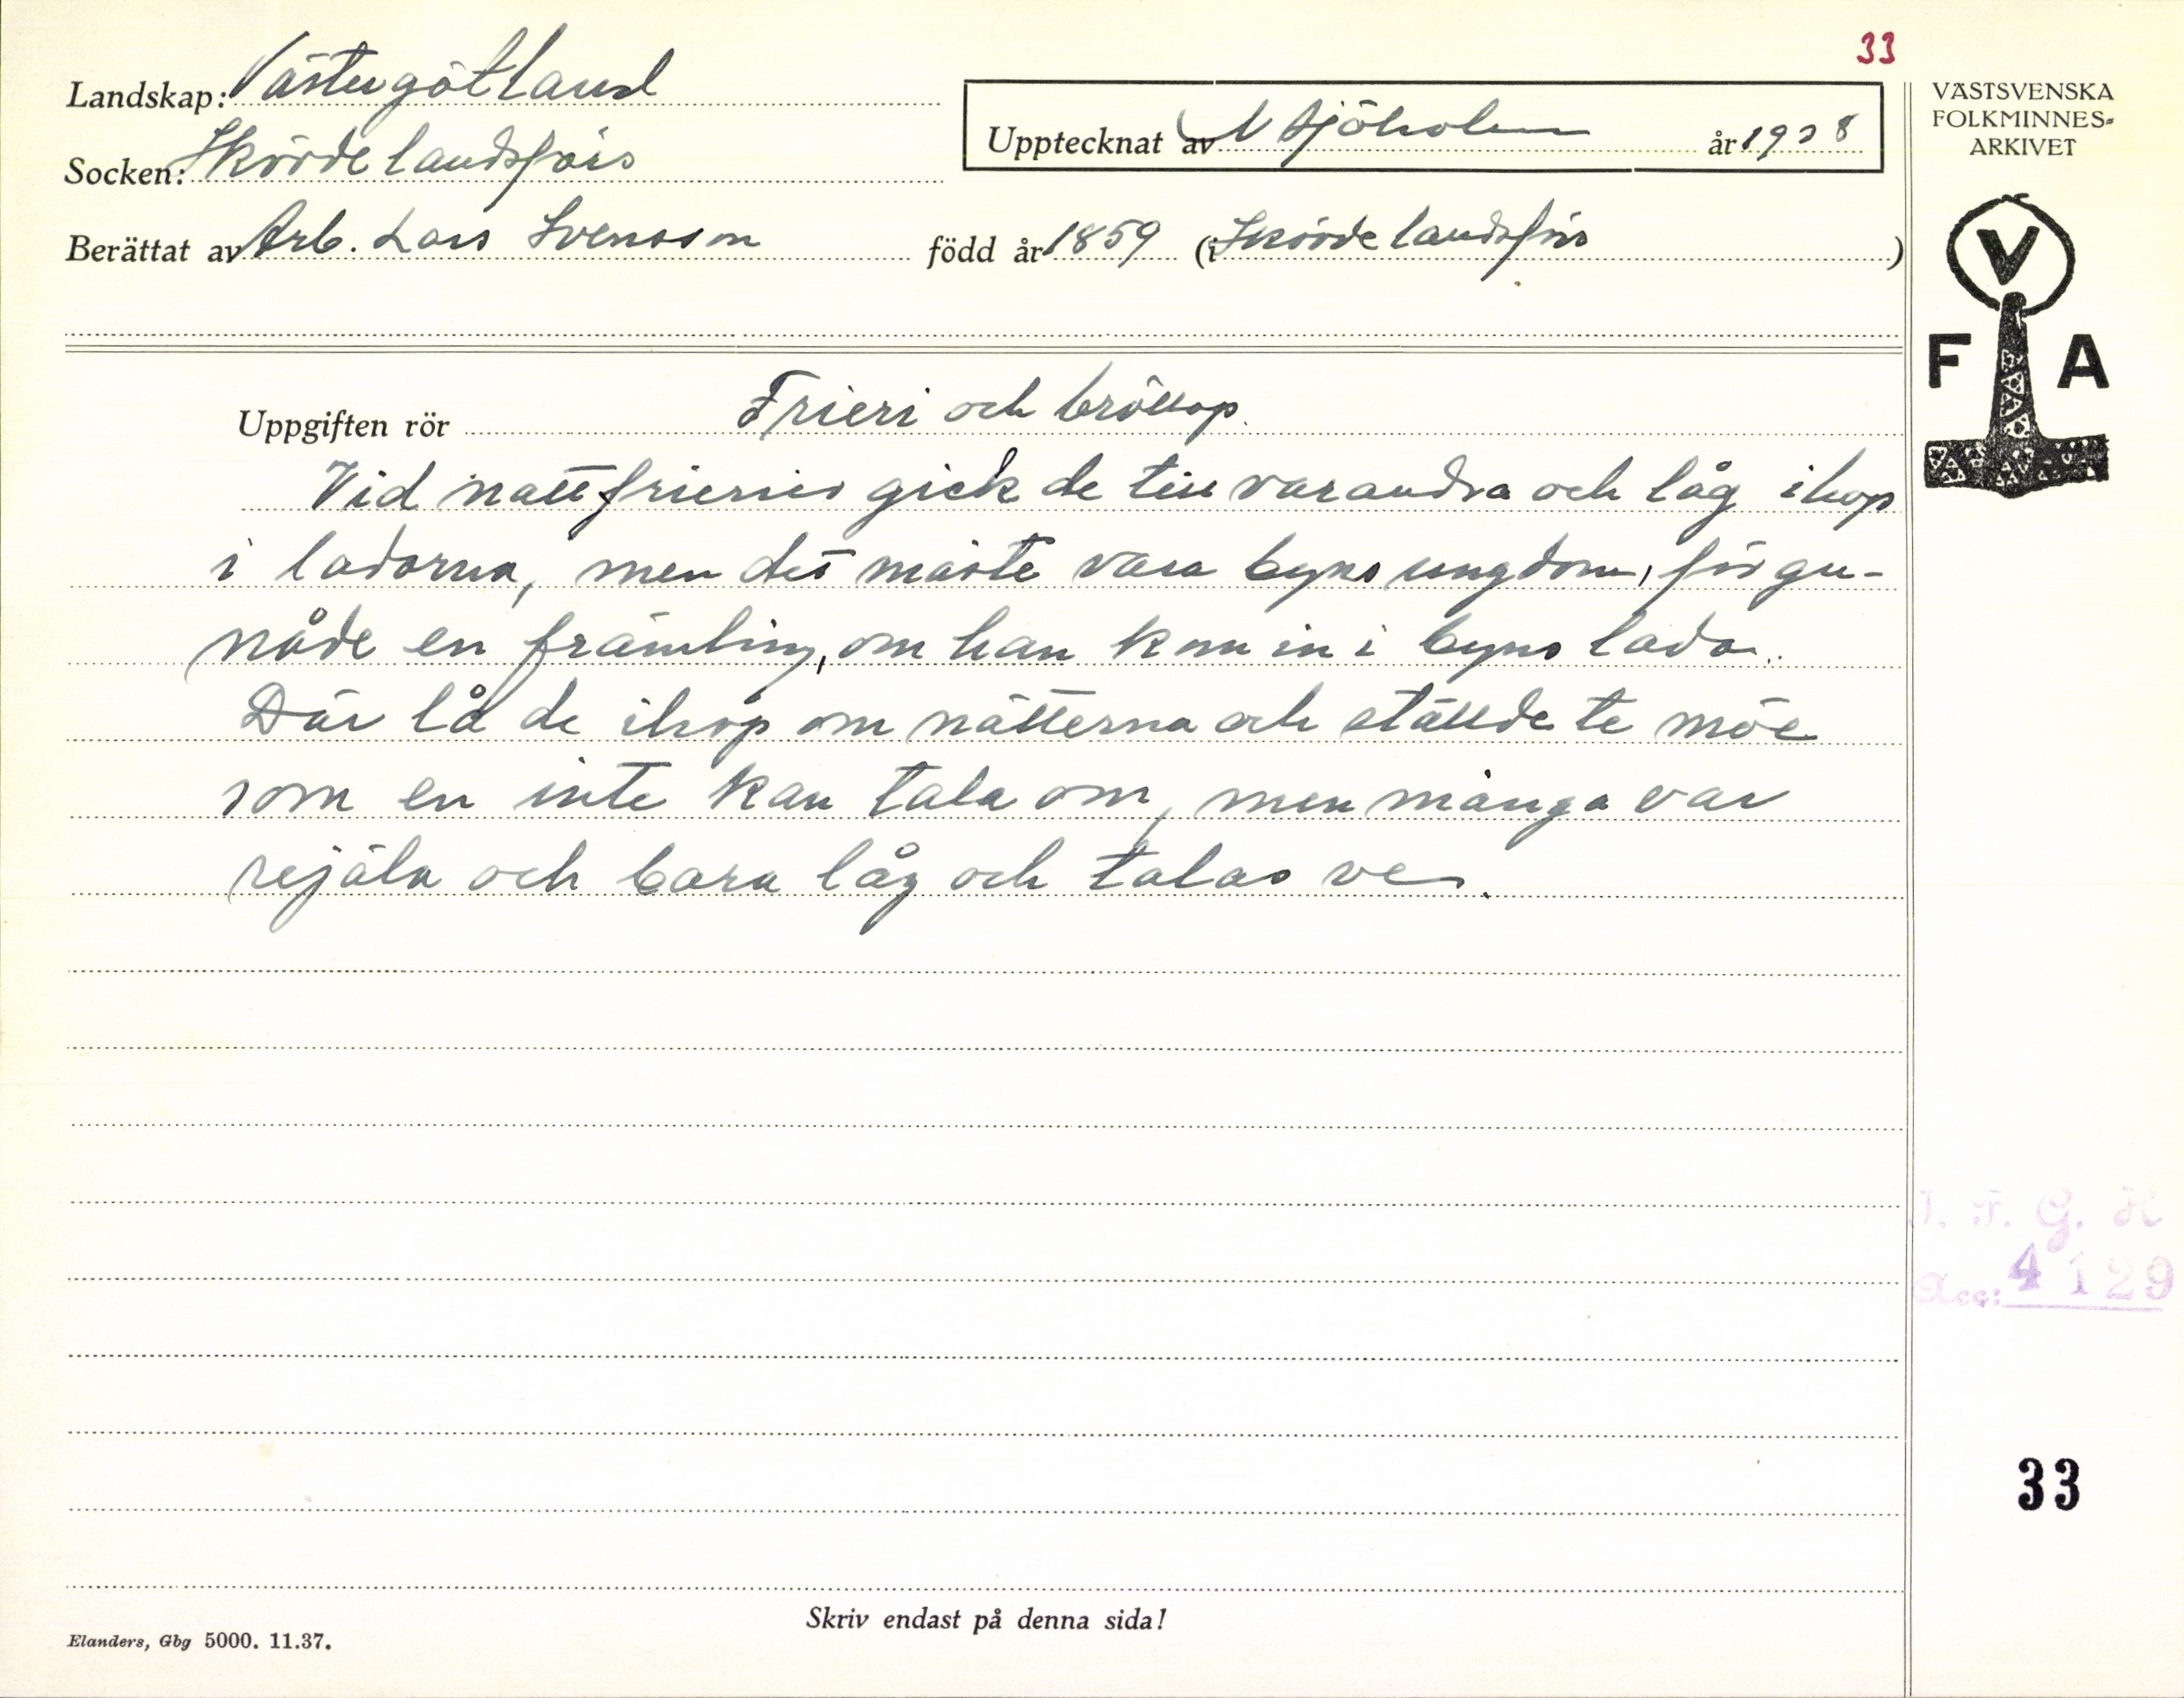 33
Landskap: Västergötland
Upptecknat av N Sjöholm år 1938
VÄSTSVENSKA
FOLKMINNES=
ARKIVET
Socken: Skövde landsförs
Berättat av Arb. Lars Svensson född år 1859 (i Skövde landsförs )
V
F A
Uppgiften rör Frieri och bröllop.
Vid nattfrierier gick de till varandra och låg ihop
i ladorna, men det måste vara byns ungdom, för gu-
nåde en främling, om han kom in i byns lada.
Där lå de ihop om nätterna och ställde te möe
som en inte kan tala om, men många var
rejäla och bara låg och talas ve.
I. F. G. H
Acc: 4129
33
Skriv endast på denna sida!
Elanders, Gbg 5000. 11.37.